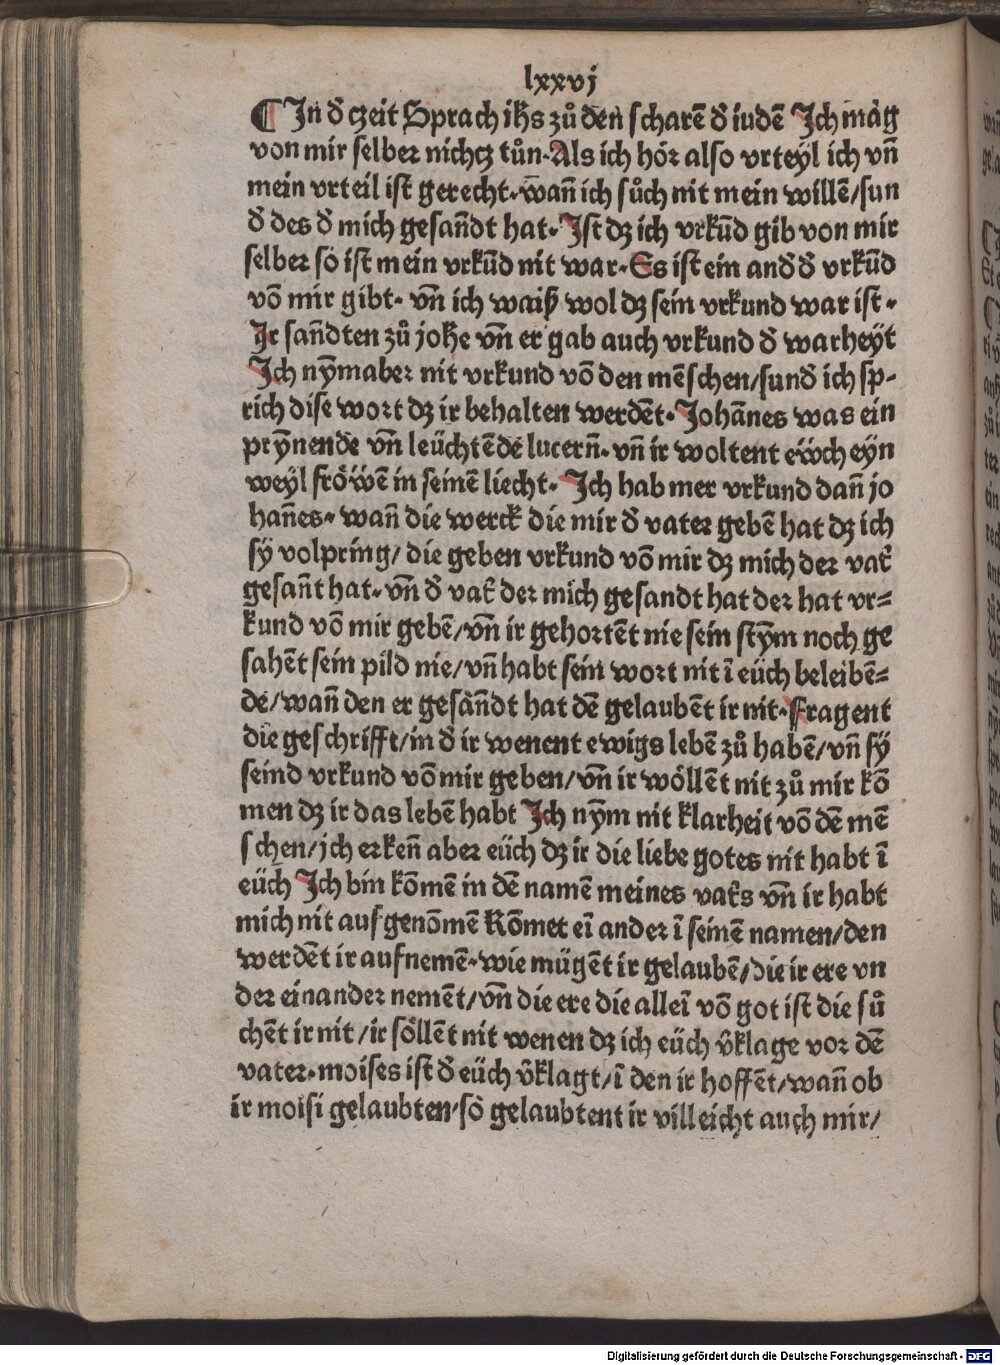 lxxvj
¶ In d̕ czeit Sprach ihs zů den scharē d̕ iudē Ich mag
von mir selber nichcz tůn. Als ich hör also vrteyl ich vn̄
mein vrteil ist gerecht. wan̄ ich sůch nit mein willē/sun
d̕ des d̕ mich gesan̄dt hat. Ist dz ich vrkūd gib von mir
selber so ist mein vrkūd nit war. Es ist ein and̕ d̕ vrkūd
vō mir gibt. vn̄ ich waiß wol dz sein vrkund war ist.
Ir san̄dten zů johe vn̄ er gab auch vrkund d̕ warheyt
Ich nȳm aber nit vrkund vō den mēschen/sund̕ ich sp-
rich dise wort dz ir behalten werdēt. Johānes was ein
prȳnende vn̄ leüchtēde lucern̄. vn̄ ir woltent eẅch eyn
weyl fröẅē in seinē liecht. Ich hab mer vrkund dan̄ jo
han̄es. wan̄ die werck die mir d̕ vater gebē hat dz ich
sÿ volpring/ die geben vrkund vō mir dz mich der vat̕
gesan̄t hat. vn̄ d̕ vat̕ der mich gesandt hat der hat vr=
kund vō mir gebē/vn̄ ir gehortēt nie sein stȳm noch ge
sahēt sein pild nie/vn̄ habt sein wort nit ī eüch beleibē=
de/wan̄ den er gesan̄dt hat dē gelaubēt ir nit. Fragent
die geschrifft/in d̕ ir wenent ewigs lebē zů habē/vn̄ sÿ
seind vrkund vō mir geben/vn̄ ir wöllēt nit zů mir kō
men dz ir das lebē habt Ich nȳm nit klarheit vō dē mē
schen/jch erken̄ aber eüch dz ir die liebe gotes nit habt ī
eüch Ich bin kōmē in dē namē meines vat̕s vn̄ ir habt
mich nit aufgenōmē Kōmet eī ander ī seinē namen/den
werdēt ir aufnemē. wie mügēt ir gelaubē/die ir ere vn
der einander nemēt/vn̄ die ere die alleī vō got ist die sů
chēt ir nit/ir söllēt nit wenen dz ich eüch v̕klage vor dē
vater. moises ist d̕ eüch v̕klagt/ī den ir hoffēt/wan̄ ob
ir moisi gelaubten/so gelaubtent ir villeicht auch mir/
Digitalisierung gefördert durch die Deutsche Forschungsgemeinschaft - DFG